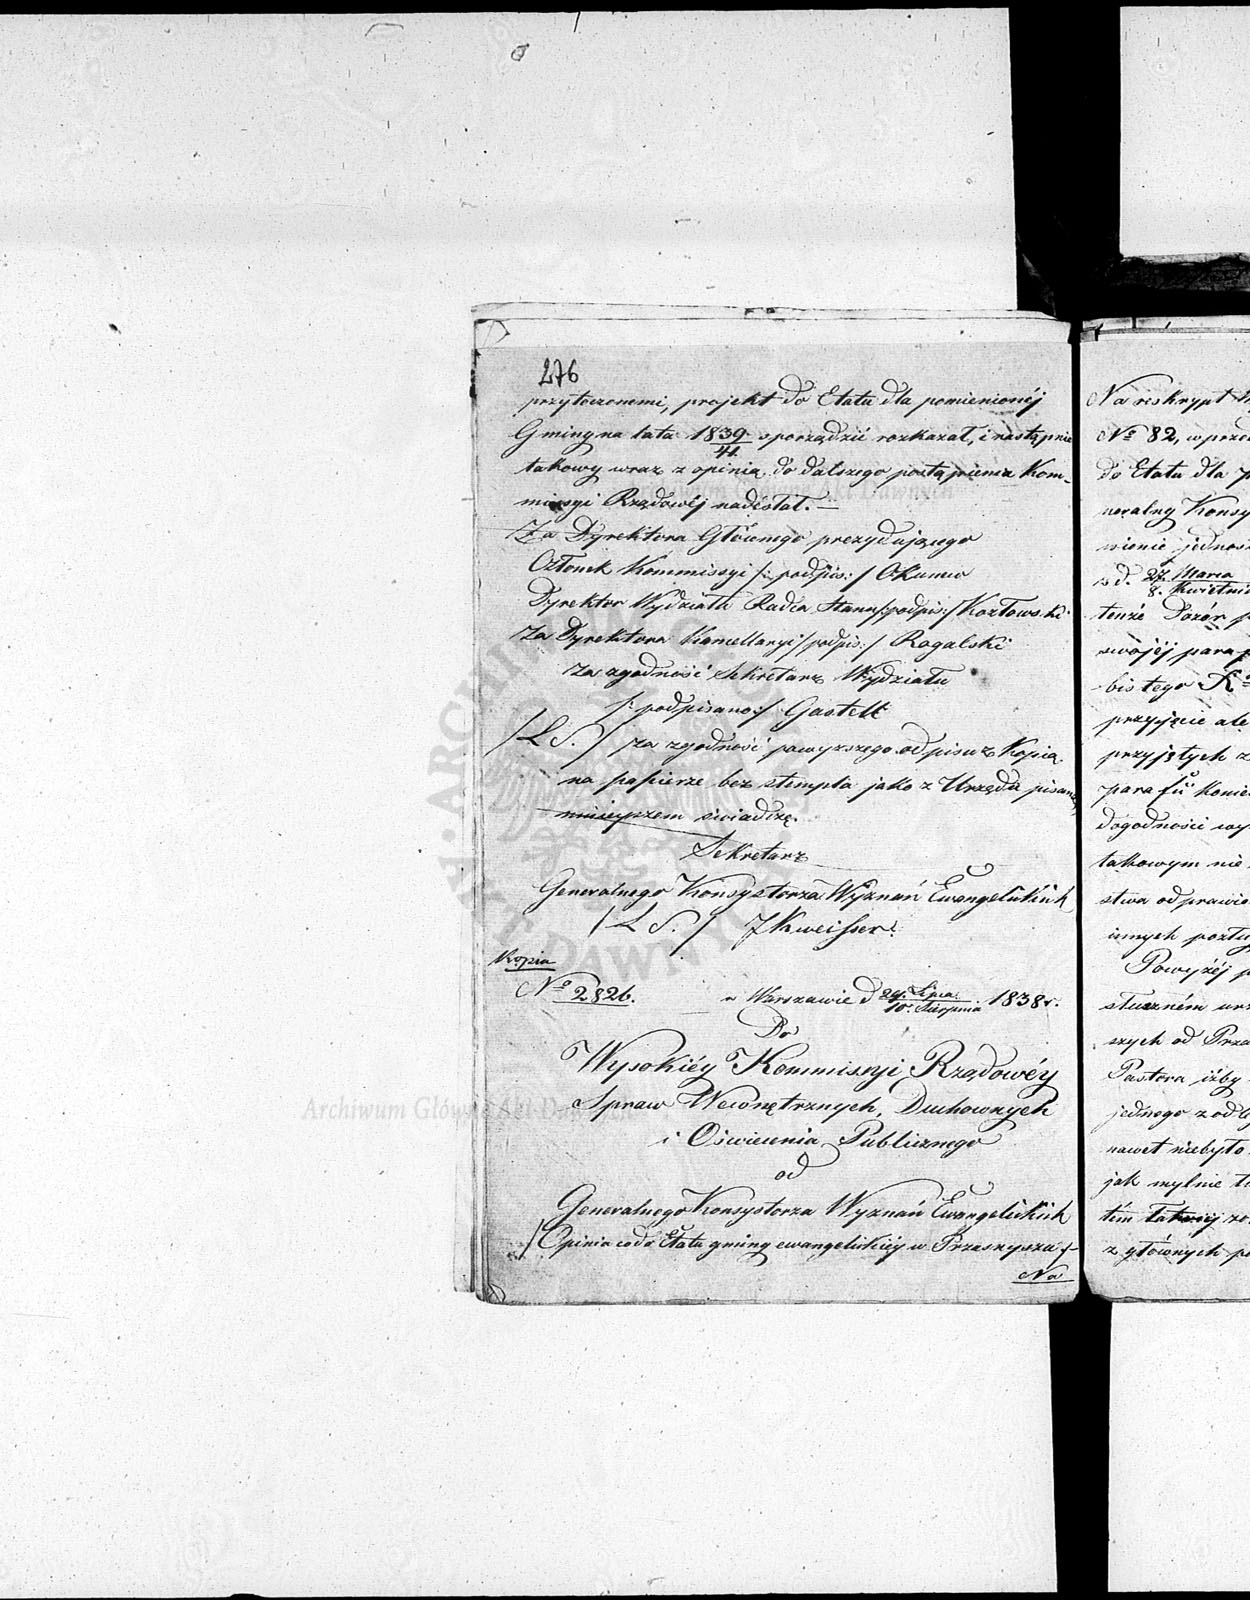 276
przytoczonemi, projekt do Etatu dla pomienionéj
Gminy na lata 1839/41 sporządzić rozkazał, i następnie
takowy wraz z opinią do dalszego postąpienia Kom-
missyi Rządowéj nadesłał. —
Za Dyrektora Głównego prezydującego
Członek Kommissyi /: podpis: / Okuniew
Dyrektor Wydziału Radca Stanu /:podpis:/ Kozłowski
Za Dyrektora Kancellaryi /podpis:/ Rogalski
Za zgodność Sekretarz Wydziału
/: podpisano:/ Gastell
/L S./ Za zgodność powyższego odpisu z Kopią
na papierze bez stempla jako z Urzędu pisaną
niniejszem świadczę.
Sekretarz
Generalnego Konsystorza Wyznań Ewangelickich
/L S./ J Kweisser
Kopia
No 2826. w Warszawie d 29. Lipca/10. Sierpnia 1838 r.
Do
Wysokiéy Kommissyi Rządowéy
Spraw Wewnętrznych, Duchownych
i Oświecenia Publicznego
od
Generalnego Konsystorza Wyznań Ewangelickich
/Opinia co do Etatu gminy ewangelickiéy w Przasnyszu /
Na
Na reskrypt
No 82, w przed
do Etatu dla
neralny Konsy
wienie jednos
z d. 27. Marca/8. Kwietnia
tenże Dozór
swojéj para
bis tego
przyjęcie ale
przyjętych z
parafii konie
dogodności
takowym nie
stwa odprawia
innych
Powyżéj
słuszném
szych od Prza
Pastora iżby
jednego z od
nawet niebyło
jak mylnie
tém
z głównych
Archiwum Główne Akt Dawnych